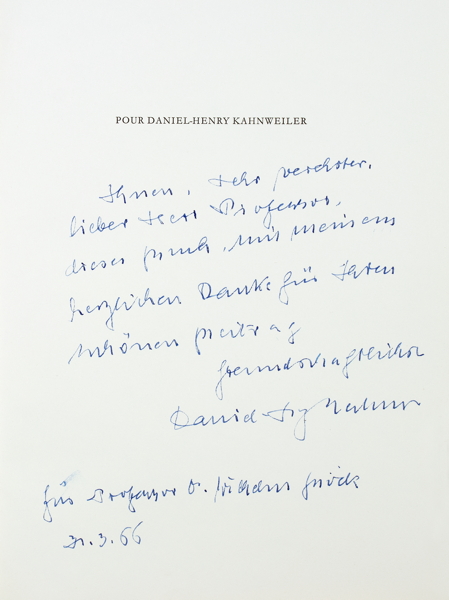 POUR DANIEL-HENRY KAHNWEILER
Ihnen, sehr verehrter,
lieber Herr Professor,
dieses Buch, mit meinem
herzlichen Danke für Ihren
schönen Beitrag
freundschaftlichst
Daniel-Hy Kahnw
Für Professor D. Wilhelm
31.3.66